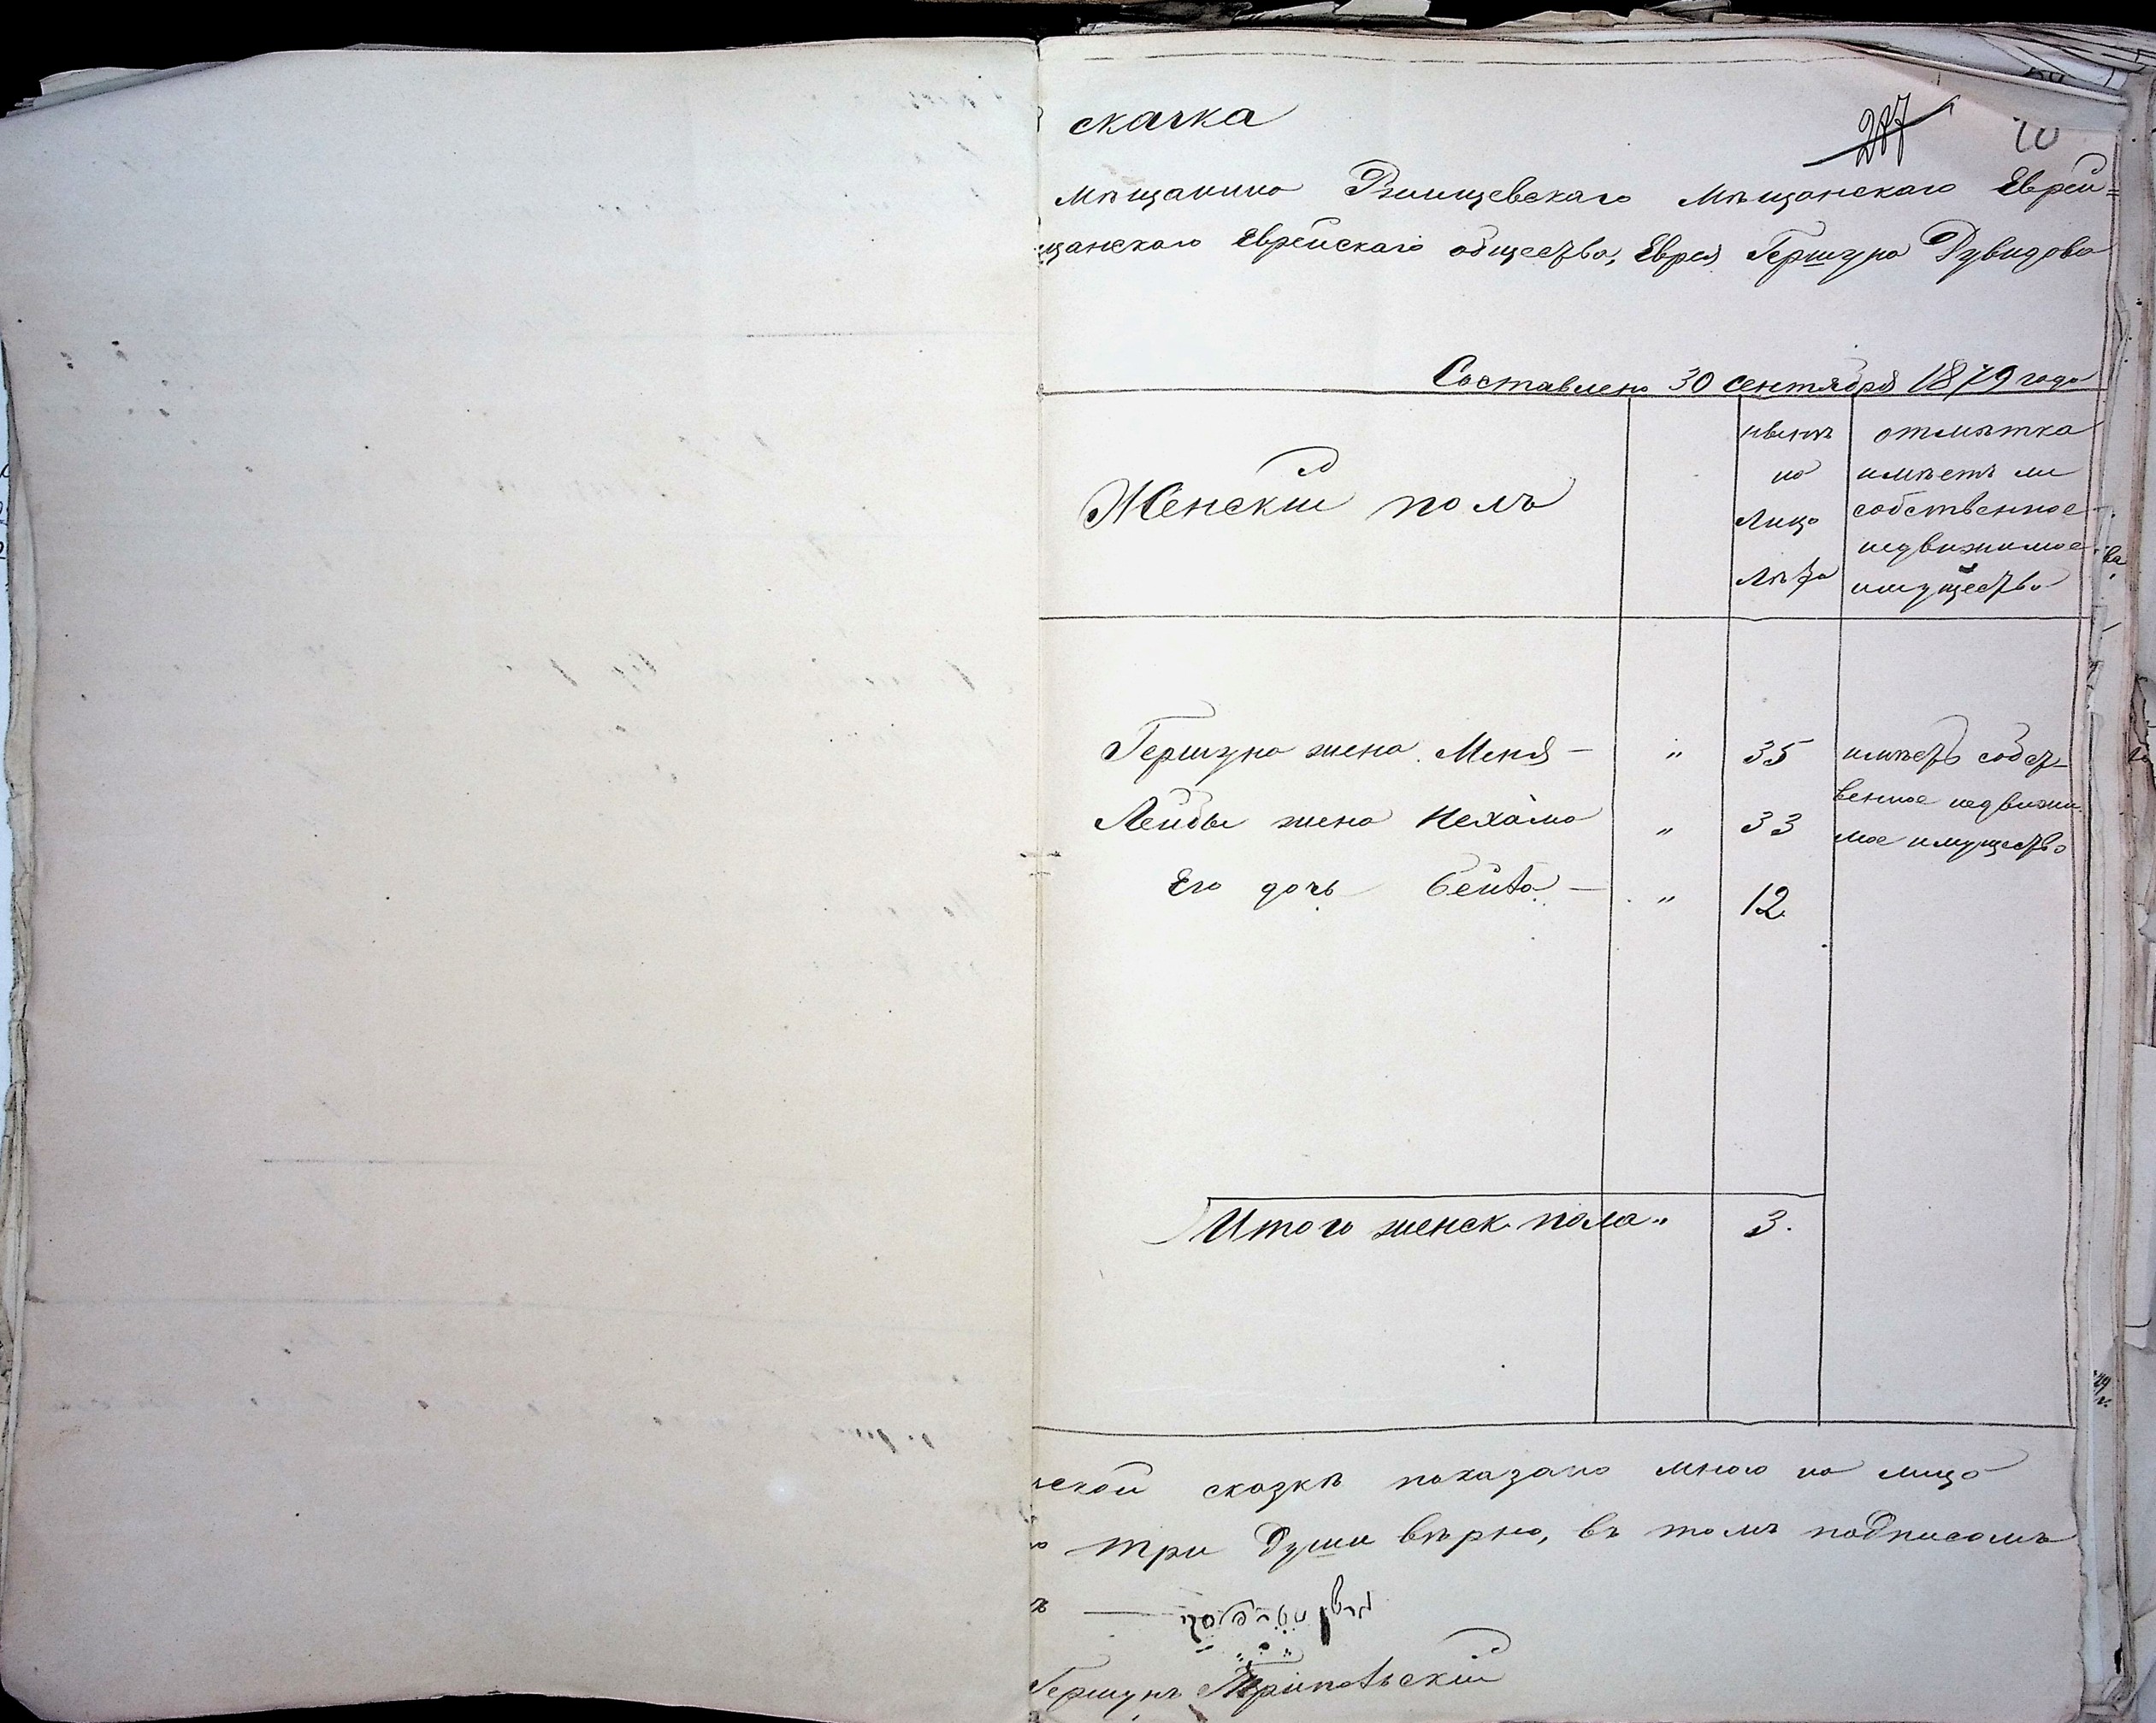 скаска
287
70
мѣщанина Ржищевскаго мѣщанскаго Еврей=
щанскаго Еврейскаго общества, Еврея Гершуна Дувидова
Составлена 30 сентября 1879 года
Женскій полъ
нынѣ
на
Лицо
Лѣта
отмѣтка
имѣетъ ли
собственное
недвижимое
имущество
Гершуна жена Меня — " 35 имѣетъ собст
венное недвижи
Лейбы жена Нехама " 33
мое имущество
Его дочь Бейла — " 12.
Итого женск. пола " 3.
ской сказкѣ показано мною на лицо
три души вѣрно, въ томъ подписомъ
Гершунъ Трипольскій